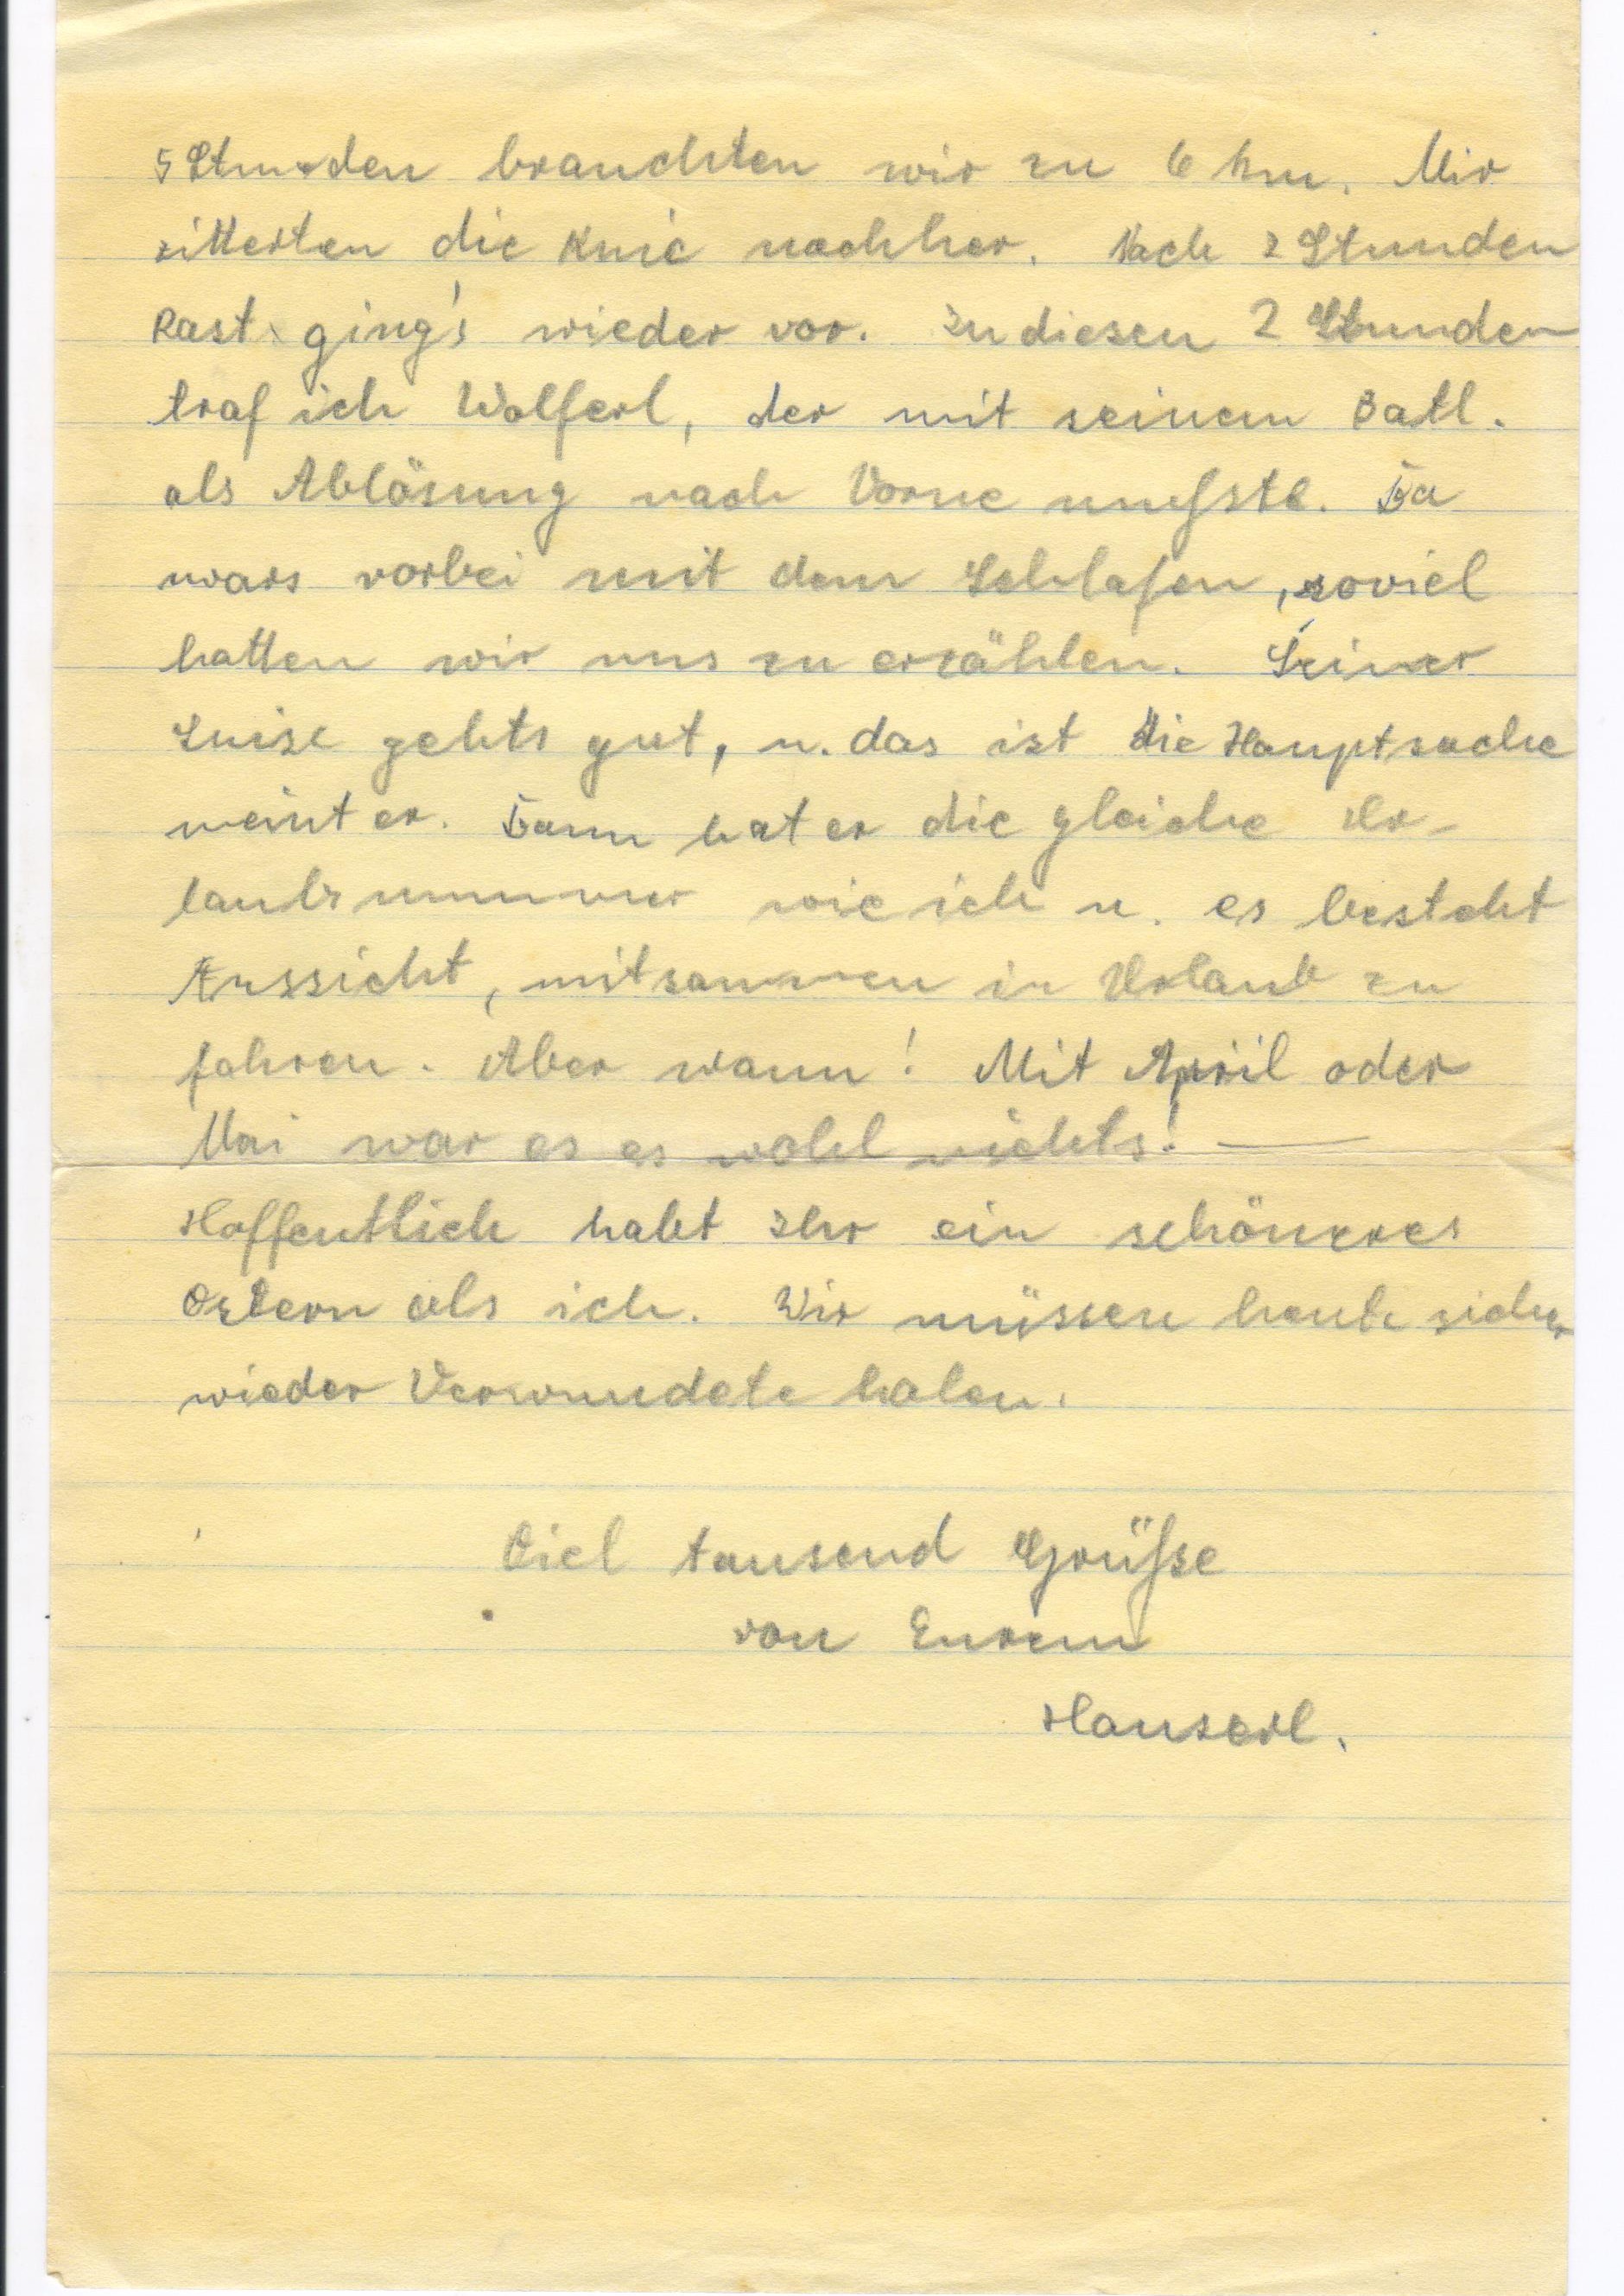 5 Stunden brauchten wir zu 6 km. Mir
zitterten die Knie nachher. Nach 2 Stunden
Rast ging's wieder vor. In diesen 2 Stunden
traf ich Wolferl, der mit seinem Batl.
als Ablösung nach Vorne mußste. Da
wars vorbei mit dem Schlafen, soviel
hatten wir uns zu erzählen. Seiner
Luise gehts gut, u. das ist die Hauptsache
meint er. Dann hat er die gleiche Ur-
laubsnummer wie ich u. es besteht
Aussicht, mitsammen in Urlaub zu
fahren. Aber wann! Mit April oder
Mai war es es wohl nichts! —
Hoffentlich habt Ihr ein schöneres
Ostern als ich. Wir müssen heute sicher
wieder Verwundete holen.
Viel tausend Grüße
von Eurem
Hanserl.